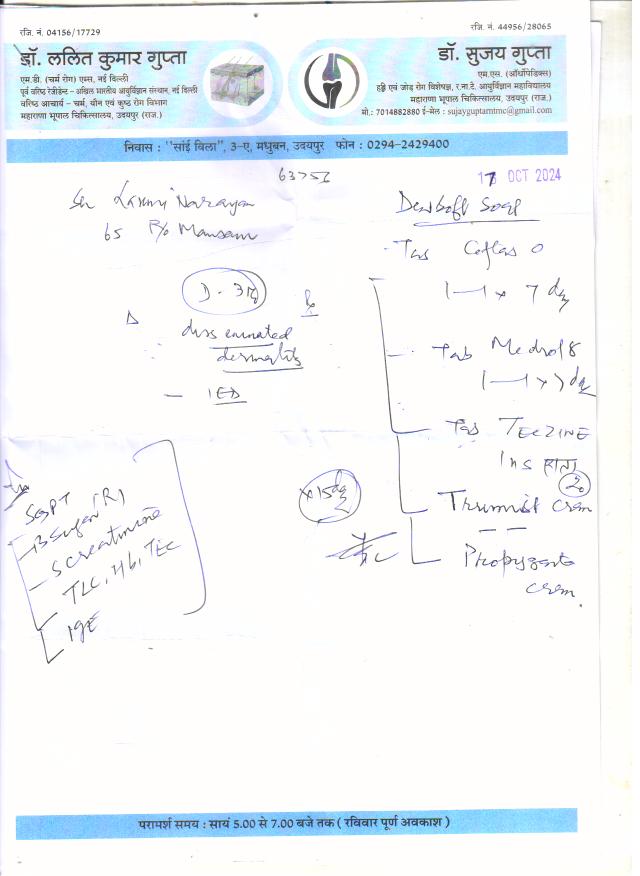 रजि. नं. 04156/17729
रजि. नं. 44956/28065
डॉ. ललित कुमार गुप्ता
एम.डी. (चर्म रोग) एम्स, नई दिल्ली
पूर्व वरिष्ठ रेजीडेन्ट - अखिल भारतीय आयुर्विज्ञान संस्थान, नई दिल्ली
वरिष्ठ आचार्य - चर्म, यौन एवं कुष्ठ रोग विभाग
महाराणा भूपाल चिकित्सालय, उदयपुर (राज.)
डॉ. सुजय गुप्ता
एम.एस. (ऑर्थोपेडिक्स)
हड्डी एवं जोड़ रोग विशेषज्ञ, र.ना.टे. आयुर्विज्ञान महाविद्यालय
महाराणा भूपाल चिकित्सालय, उदयपुर (राज.)
मो.: 7014882880 ई-मेल : sujayguptarntmc@gmail.com
निवास : "सांई विला", 3-ए, मधुबन, उदयपुर फोन : 0294-2429400
17 OCT 2024
Laxmi Narayan
65 R/o
Δ
disseminated
dermatitis
- IED
Rx
Soap
Tab Ceflas O
1—1 x 7 day
Tab Medrol 8
1—1 x 7 day
Tab TECZINE
1 hs रात
20
cream
cream.
x 15 day
SGPT
B Sugar (R)
S creatinine
TLC, Hb, TEC
IgE
परामर्श समय : सायं 5.00 से 7.00 बजे तक ( रविवार पूर्ण अवकाश )